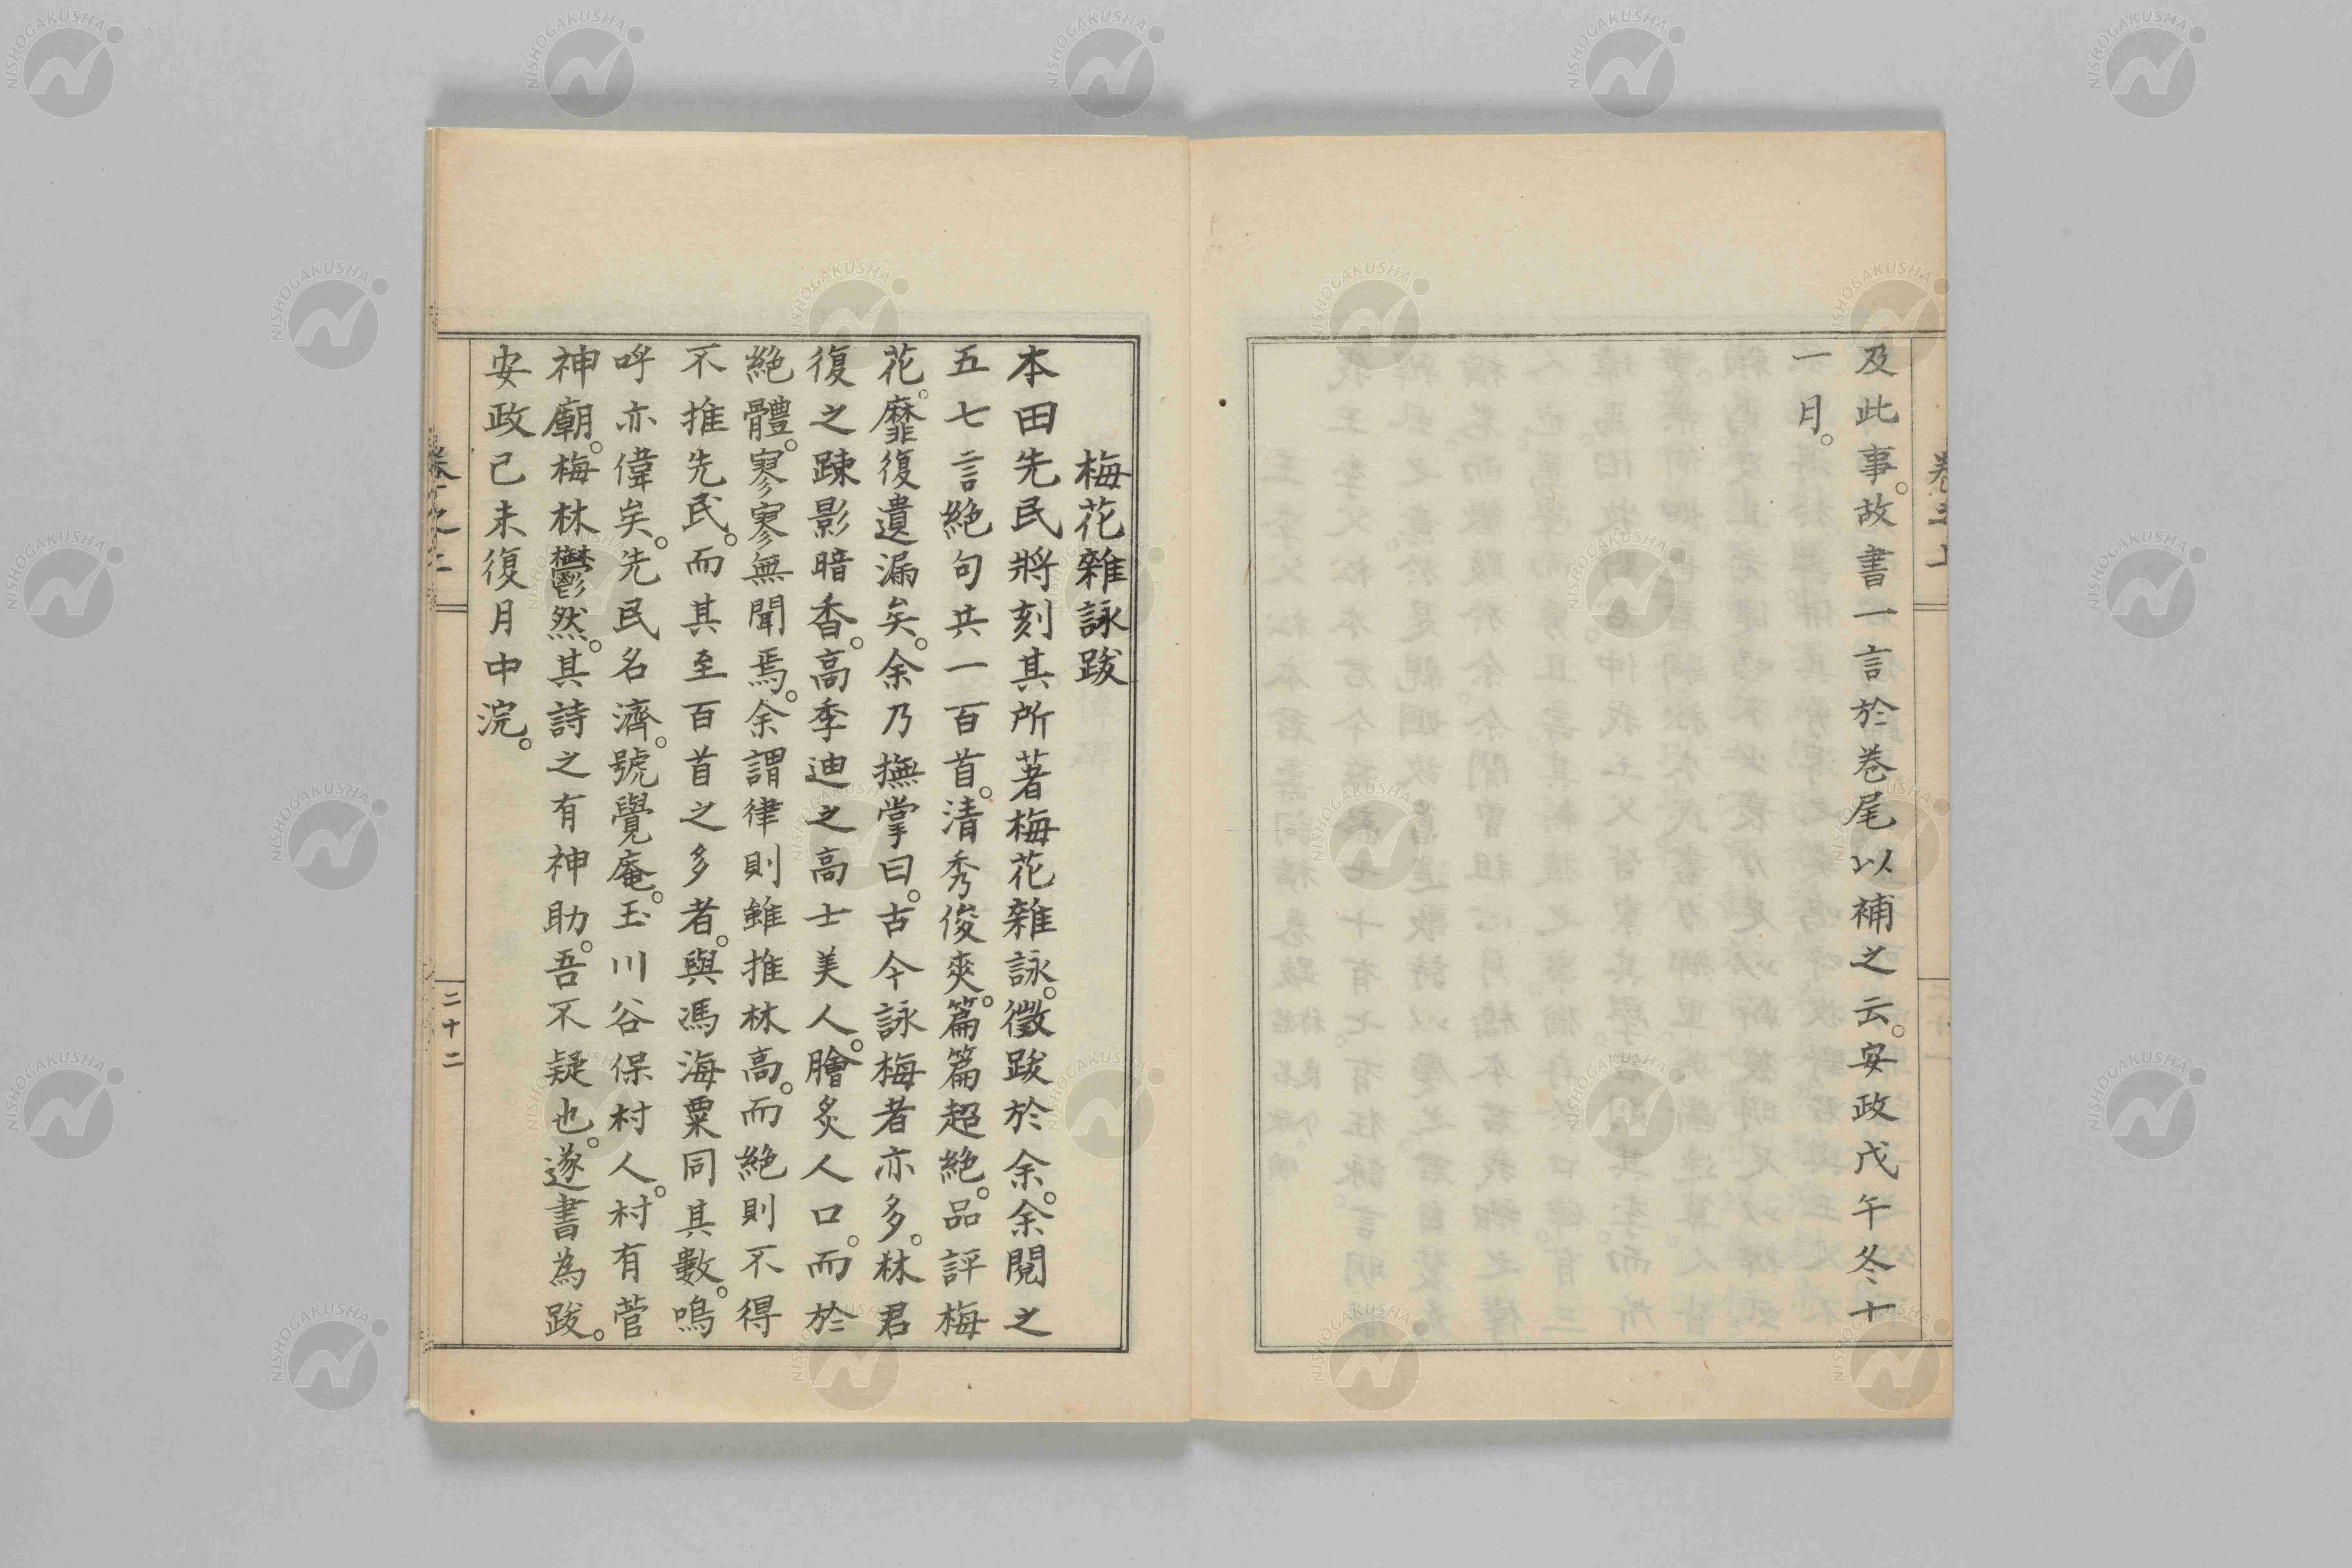 及此事。故書一言於卷尾以補之云。安政戊午冬十
一月。
梅花雜詠跋
本田先民將刻其所著梅花雜詠。徵跋於余。余閱之
五七言絶句共一百首。清秀俊爽。篇篇超絶。品評梅
花。靡復遺漏矣。余乃撫掌曰。古今詠梅者亦多。林君
復之踈影暗香。高季迪之高士美人。膾炙人口。而於
絶體。寥寥無聞焉。余謂律則雖推林高。而絶則不得
不推先民。而其至百首之多者。與馮海粟同其數。嗚
呼亦偉矣。先民名濟。號覺庵。玉川谷保村人。村有菅
神廟。梅林鬱然。其詩之有神助。吾不疑也。遂書為跋。
安政己未復月中浣。
二十二
NISHOGAKUSHA